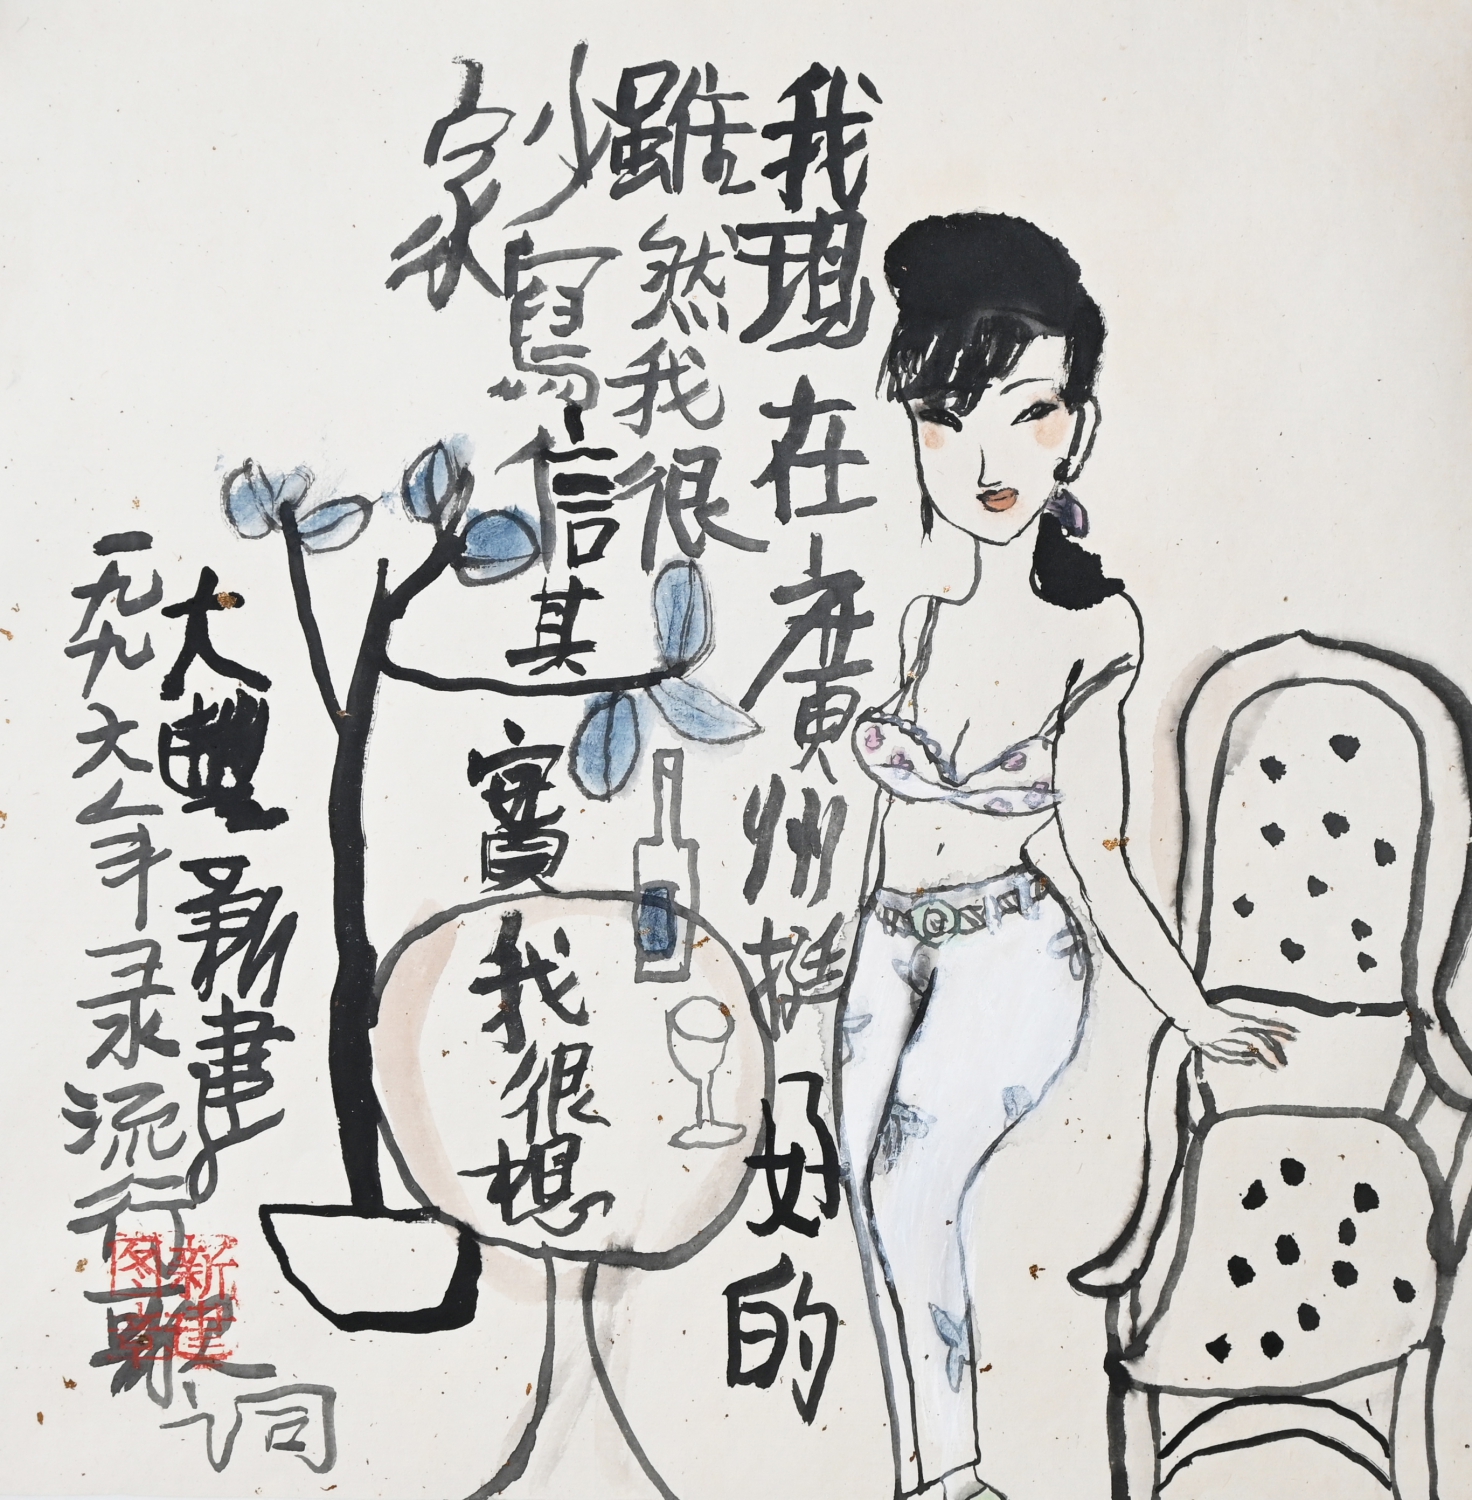 我現在廣州挺好的
雖然我很
少寫信其實我很想
家
大豐新建
一九九六年录流行歌词
新建
图章